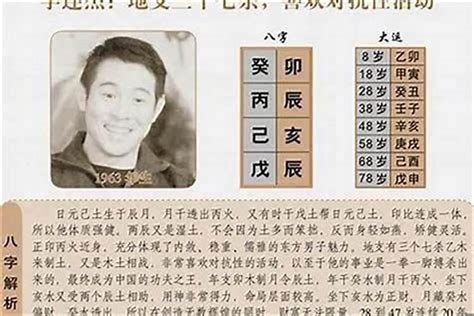 李连杰：地支三个七杀，喜欢对抗性活动
八字
大运
癸 卯
丙 辰
己 亥
戊 辰
8 岁 乙卯
18 岁 甲寅
28 岁 癸丑
38 岁 壬子
48 岁 辛亥
58 岁 庚戌
68 岁 己酉
78 岁 戊申
1963
八字解析
日元己土生于辰月，月干透出丙火，又有时干戊土帮日元己土，印比连成一体，
所以他体质强健。两辰又是湿土，不会因为土多而笨拙，反而身轻如燕，矫健灵活。
正印丙火近身，充分体现了内敛、稳重、儒雅的东方男子魅力。地支有三个七杀乙木
来制土，又是木土相战，非常喜欢对抗性的活动，以至于他的事业是一拳一脚搏杀出
来的，最终成为中国的功夫之王。年支卯木制月令辰土，日支亥水受制于辰土，坐下亥
水又受两个辰土相助，用神非常得力，命局层面较高。坐下亥水为正财，月藏癸水为偏财，